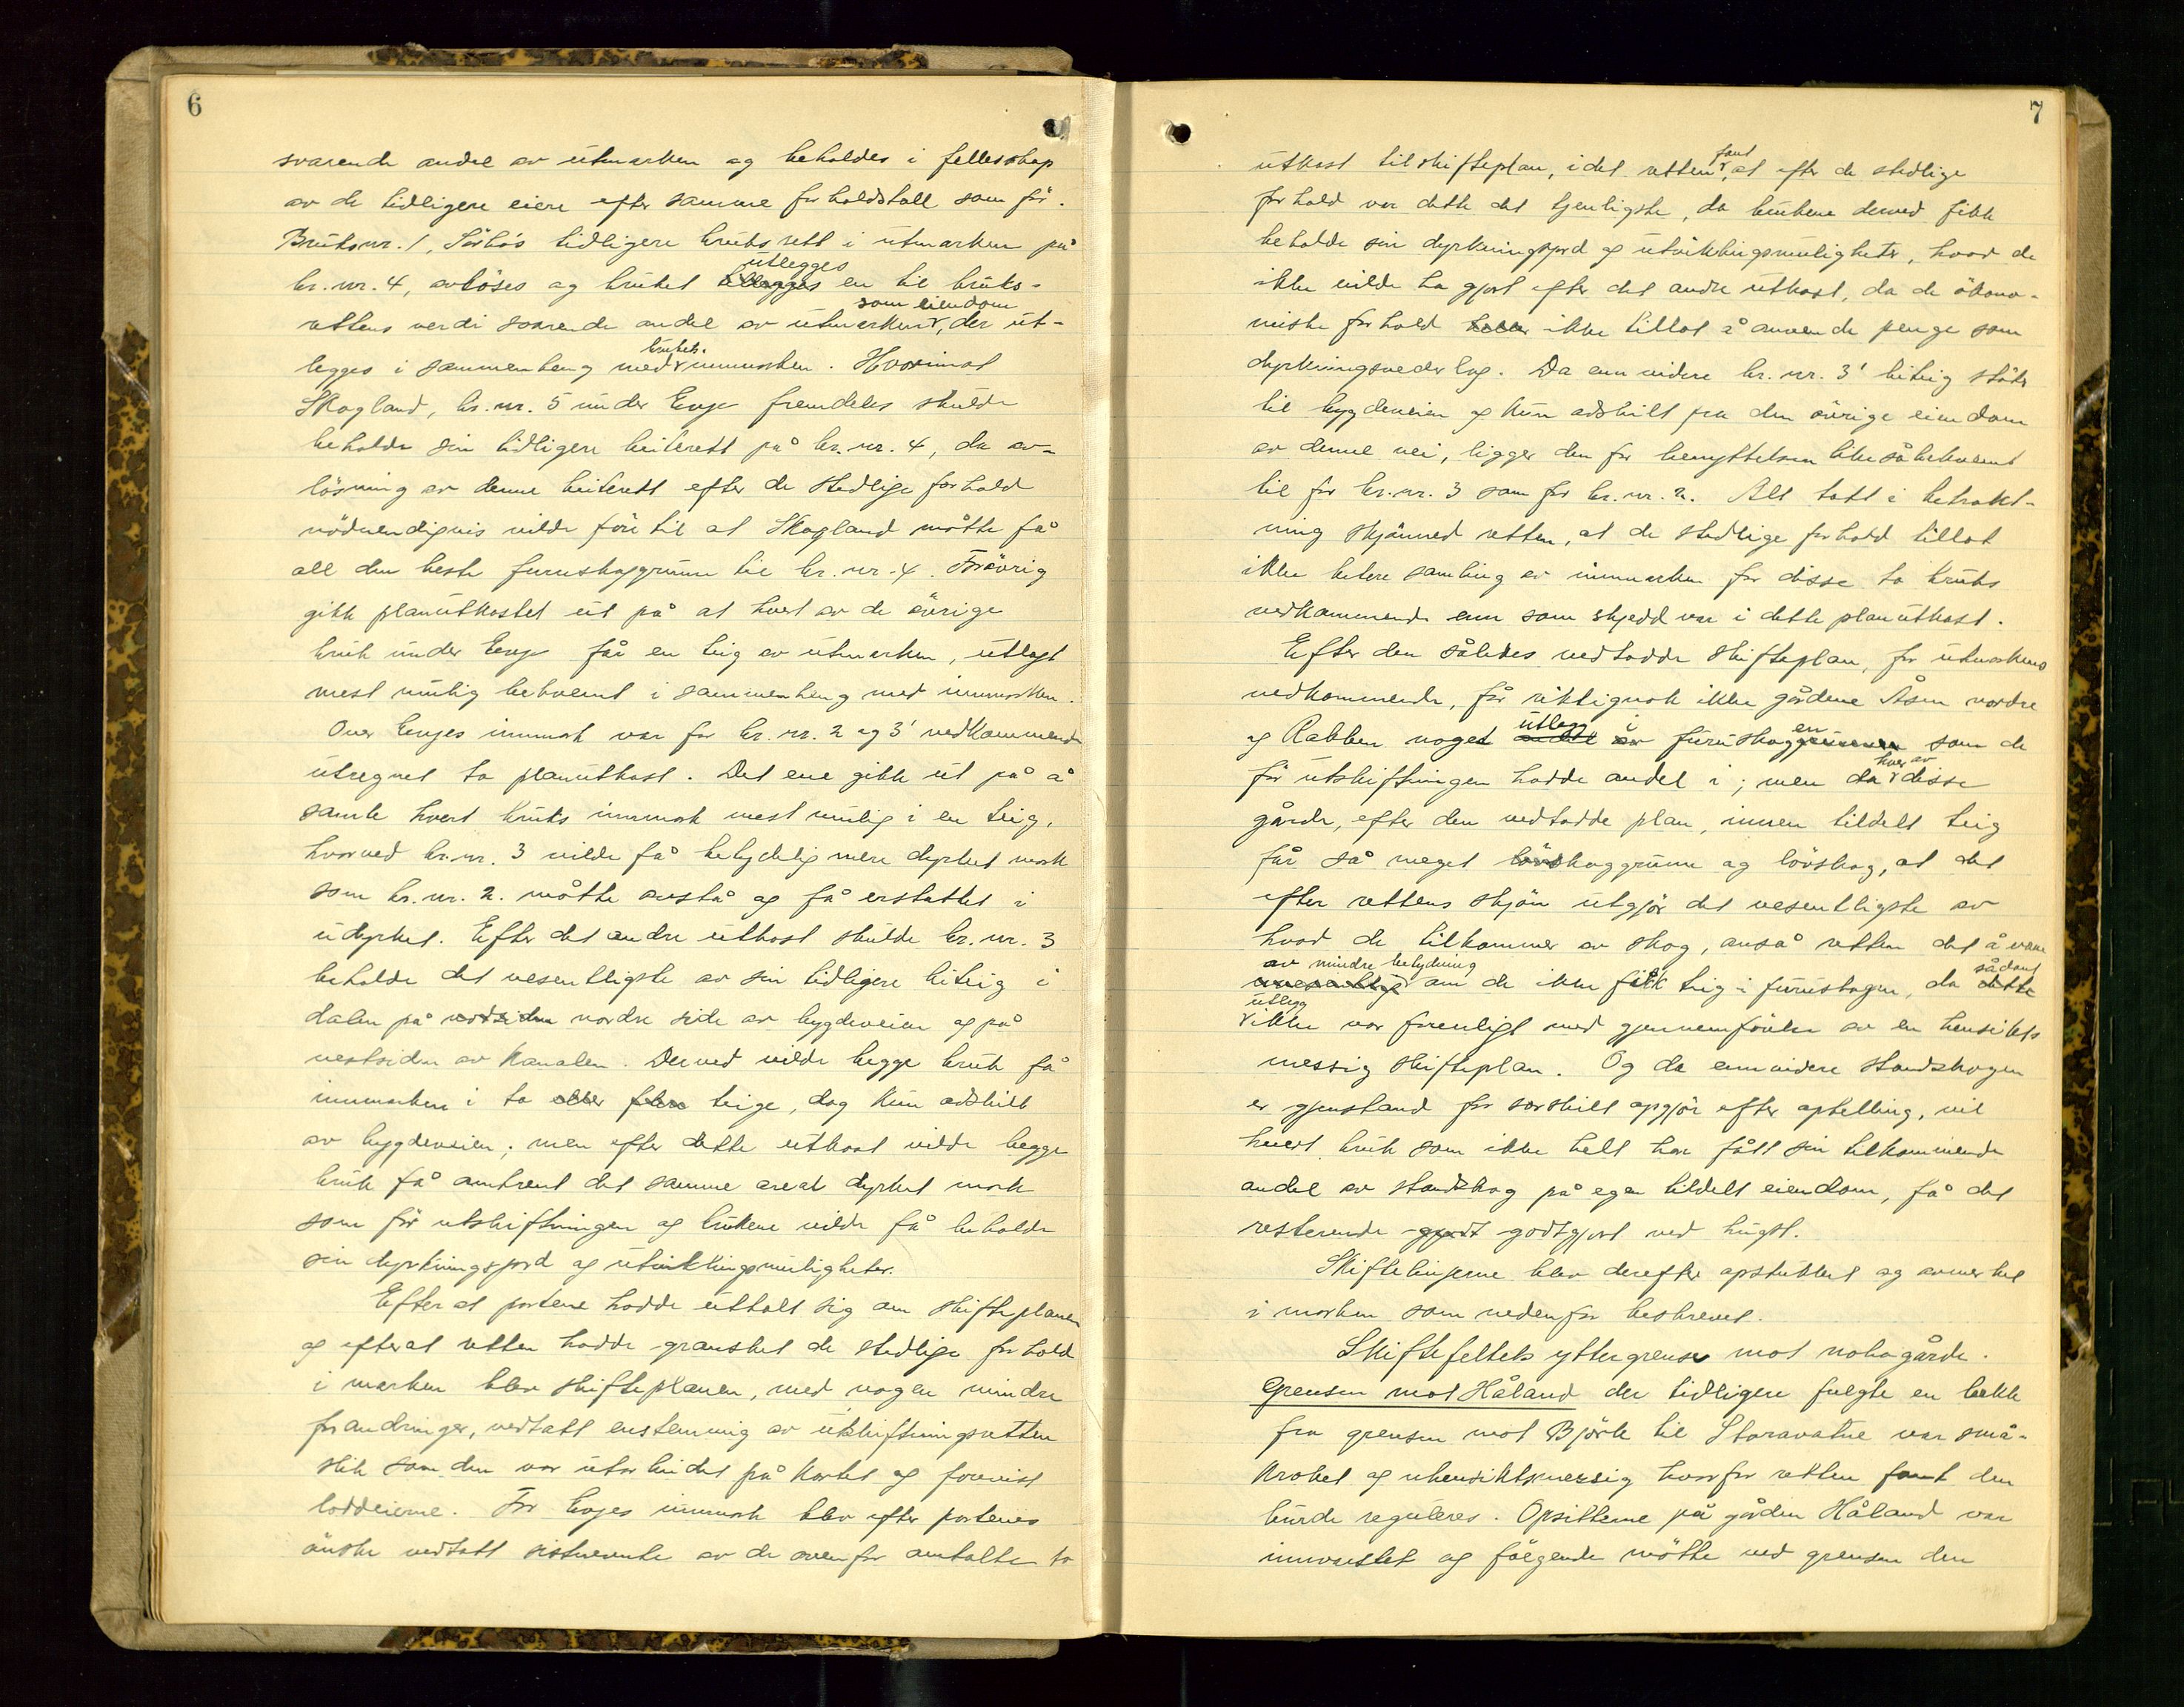 6
svarende andel av utmarken og beholdes i fellesskap
av de tidligere eiere efter samme forholdstall som för.
Bruksnr. 1, tidligere bruksrett i utmarken på
br. nr. 4, avlöses og bruket tillegges utlegges en til bruks-
rettens verdi svarende andel av utmarken som eiendom, der ut-
legges i sammenheng med brukets innmarken. Hvorimot
Skogland, br. nr. 5 under Evje fremdeles skulde
beholde sin tidligere beiterett på br. nr. 4, da av-
lösning av denne beiterett efter de stedlige forhold
nödvendigvis vilde före til at Skogland måtte få
all den beste furuskoggrunn til br. nr. 4. Forövrig
gikk planutkastet ut på at hvert av de övrige
bruk under Evje får en teig av utmarken, utlagt
mest mulig bekvemt i sammenheng med innmarken.
Over Evjes innmark var for br. nr. 2 og 3' vedkommende
utregnet to planutkast. Det ene gikk ut på å
samle hvert bruks innmark mest mulig i en teig,
hvorved br. nr. 3 vilde få betydelig mere dyrket mark
som br. nr. 2. måtte avstå og få erstattet i
udyrket. Efter det andre utkast skulde br. nr. 3
beholde det vesentligste av sin tidligere biteig i
dalen på nordsiden nordre side av bygdeveien og på
vestsiden av Kanalen. Derved vilde begge bruk få
innmarken i to eller flere teige, dog kun adskilt
av bygdeveien; men efter dette utkast vilde begge
bruk få omtrent det samme areal dyrket mark
som för utskiftningen og brukene vilde få beholde
sin dyrkningsjord og utviklingsmuligheter.
Efter at partene hadde uttalt sig om skifteplanen
og efter at retten hadde gransket de stedlige forhold
i marken blev skifteplanen, med nogen mindre
forandringer, vedtatt enstemmig av utskiftningsretten
slik som den var utarbeidet på kartet og forevist
loddeierne. For Evjes innmark blev efter partenes
önske vedtatt sistnevnte av de ovenfor omtalte to
7
utkast til skifteplan, idet retten fant, at efter de stedlige
forhold var dette det tjenligste, da brukene derved fikk
beholde sin dyrkningsjord og utviklingsmuligheter, hvad de
ikke vilde ha gjort efter det andre utkast, da de ökono-
miske forhold heller ikke tillot å anvende penge som
dyrkningsvederlag. Da enn videre br. nr. 3' biteig stöter
til bygdeveien og kun adskilt fra den övrige eiendom
av denne vei, ligger den for benyttelsen like så bekvemt
til for br. nr. 3 som for br. nr. 2. Alt tatt i betrakt-
ning skjönned retten, at de stedlige forhold tillot
ikke bedre samling av innmarken for disse to bruks
vedkommende enn som skjedd var i dette planutkast.
Efter den således vedtadde skifteplan, for utmarkens
vedkommende, får riktignok ikke gårdene Åsen nordre
og Rabben noget andel av utlegg i furuskoggrunnen en som de
för utskiftningen hadde andel i; men da hver av disse
gårde, efter den vedtadde plan, innen tildelt teig
får så meget lövskoggrunn og lövskog, at det
efter rettens skjön utgjör det vesentligste av
hvad de tilkommer av skog, anså retten det å være
av mindre betydning
uvesentlig om de ikke fikk teig i furuskogen, da dette sådant
utlegg
ikke var forenligt med gjennemförelse av en hensikts-
messig skifteplan. Og da ennvidere standskogen
er gjenstand for særskilt opgjör efter optelling, vil
hvert bruk som ikke helt har fått sin tilkommende
andel av standskog på egen tildelt eiendom, få det
resterende godtgjort ved hugst.
Skiftelinjerne blev derefter opstukket og avmerket
i marken som nedenfor beskrevet.
Skiftefeltets yttergrense mot nabogårde.
Grensen mot Håland der tidligere fulgte en bekk
fra grensen mot Björk til Storavatne var små-
kroket og uhensiktsmessig hvorfor retten fant den
burde reguleres. Opsitterne på gården Håland var
innvarslet og fölgende mötte ved grensen den